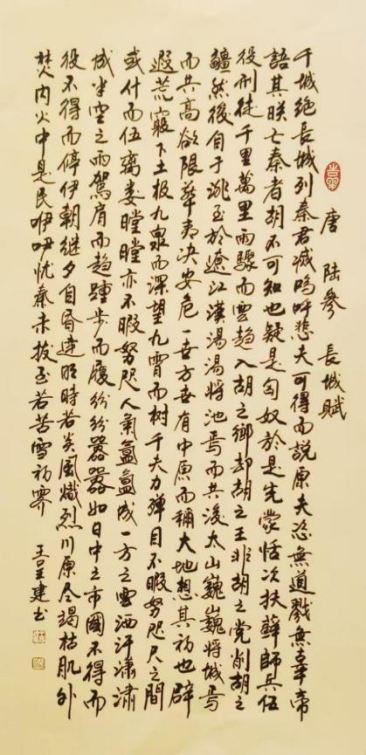 唐 陆參 長城賦
千城絕長城列秦君滅嗚呼悲夫可得而說原夫恣無道戮無辜帝
語其昳亡秦者胡不可知也疑是匈奴於是先蒙恬次扶蘇師兵伍
役刑徒千里萬里雨驟而雲趨入胡之鄉却胡之王非胡之党削胡之
然後自于洮至於遼江漢湯湯將池焉而共浚太山巍巍將城焉
而共高欲限華夷決安危一世方世有中原而稱大地想其初也闢
遐荒窺下土板九泉而深望九霄而樹千夫力殫目不暇努咫尺之間
或什而伍离娄瞠瞠亦不暇努咫人氣氲氲成一方之雲洒汗瀟瀟
成半空之雨駕肩而趨踵步而履紛紛囂囂如日中之市國不得而
役不得而停伊朝继夕自昏達明時若炎風熾烈川原合竭枯肌外
焚内火中是民咿咿忧秦未拔至若苦雪初霁
建書